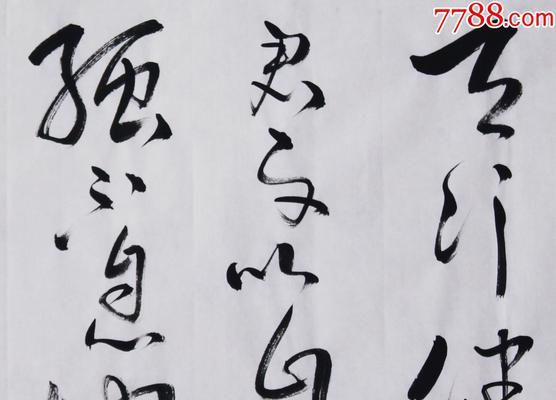 7788.com
天行健
君子以自
强不息